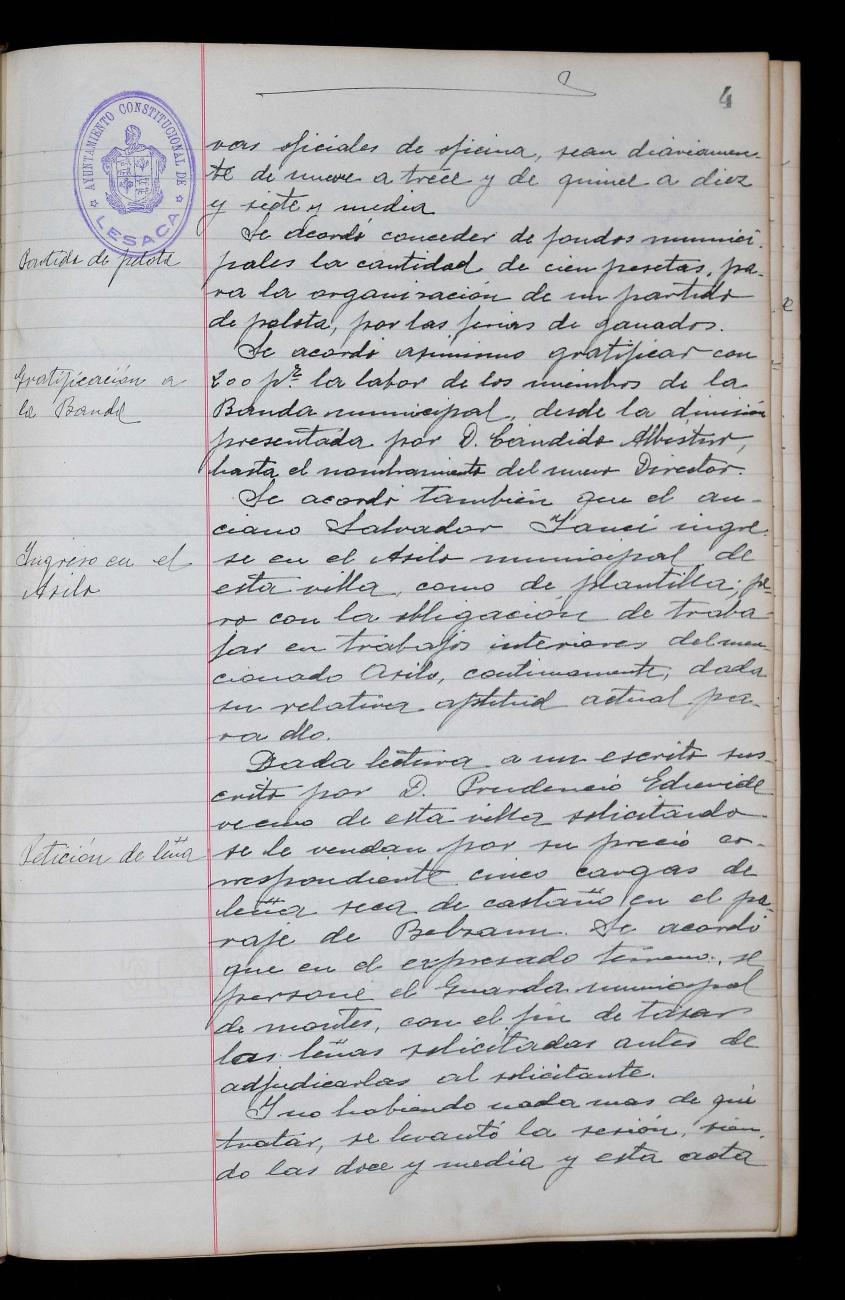 4
AYUNTAMIENTO CONSTITUCIONAL DE
LESACA
vas oficiales de oficina, sean diariamen-
te de nueve a trece y de quince a diez
y siete y media
Se acordó conceder de fondos munici-
Partido de pelota
pales la cantidad de cien pesetas, pa-
ra la organización de un partido
de pelota, por las ferias de ganados.
Se acordó asimismo gratificar con
Gratificación a
la Banda
200 pts. la labor de los miembros de la
Banda municipal, desde la dimisión
presentada por D. Cándido Albistur,
hasta el nombramiento del nuevo Director.
Se acordó también que el an-
ciano Salvador Yanci ingre-
Ingreso en el
Asilo
se en el Asilo municipal de
esta villa, como de plantilla; pe-
ro con la obligación de traba-
jar en trabajos interiores del men-
cionado Asilo, continuamente, dada
su relativa aptitud actual pa-
ra ello.
Dada lectura a un escrito sus-
crito por D. Prudencio
vecino de esta villa solicitando
Petición de leña
se le vendan por su precio co-
rrespondiente cinco cargas de
leña seca de castaño en el pa-
raje de
Se acordó
que en el expresado terreno, se
persone el Guarda municipal
de montes, con el fin de tasar
las leñas solicitadas antes de
adjudicarlas al solicitante.
Y no habiendo nada mas de que
tratar, se levantó la sesión, sien-
do las doce y media y esta acta